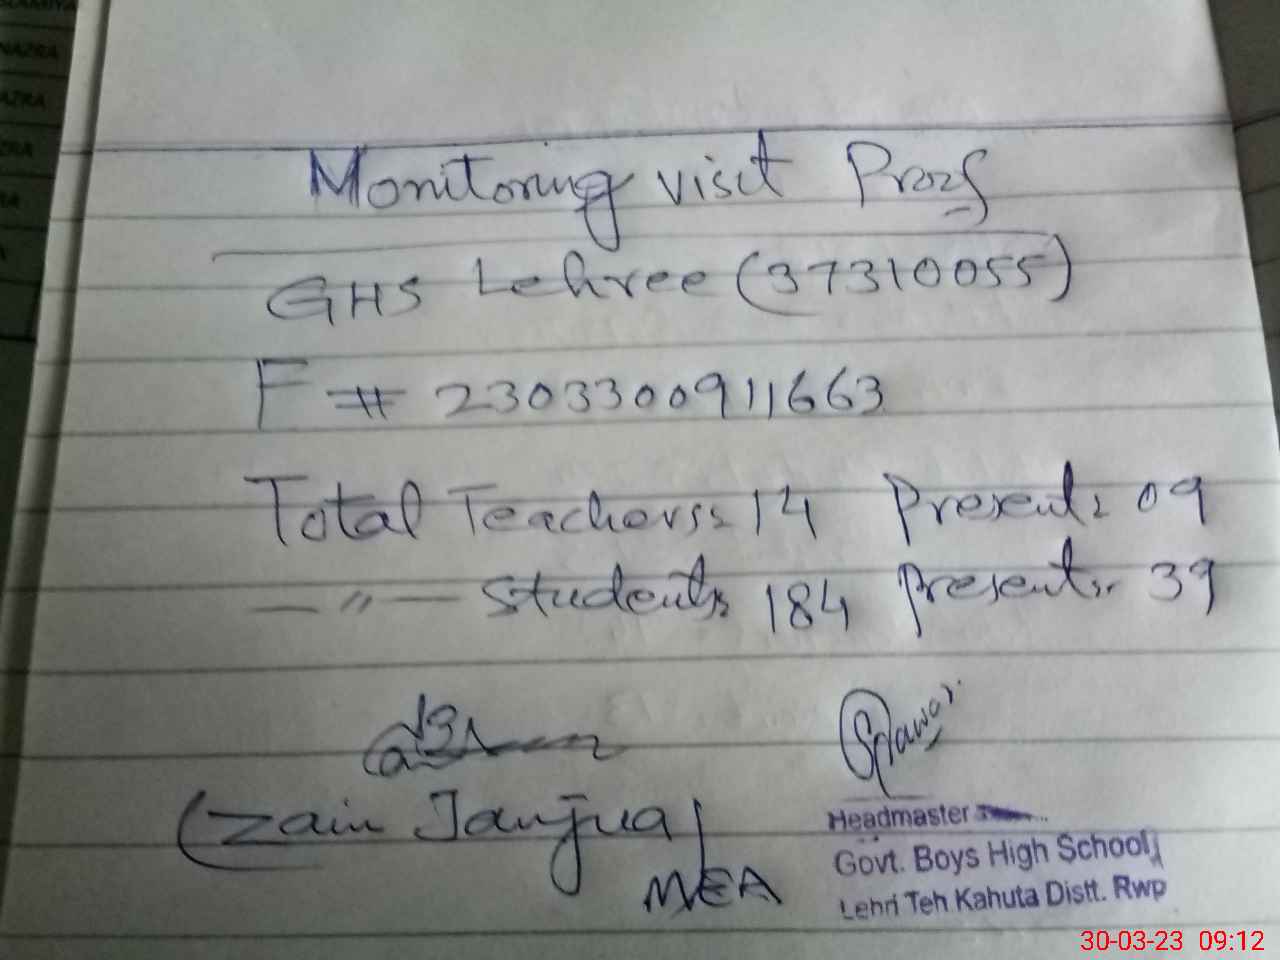 NAZRA
Monitoring visit Proof
GHS Lehree (37310055)
F # 2303300911663
Total Teachers: 14 Present: 09
—〃— Students: 184 Present: 39
(Zain Janjua)
MEA
Headmaster
Govt. Boys High School
Lehri Teh Kahuta Distt. Rwp
30-03-23 09:12